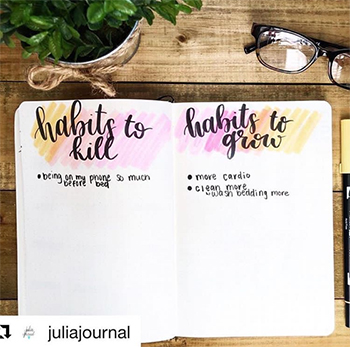 habits to
kill
• being on my phone so much
before bed
habits to
grow
• more cardio
• clean more
↳ wash bedding more
juliajournal